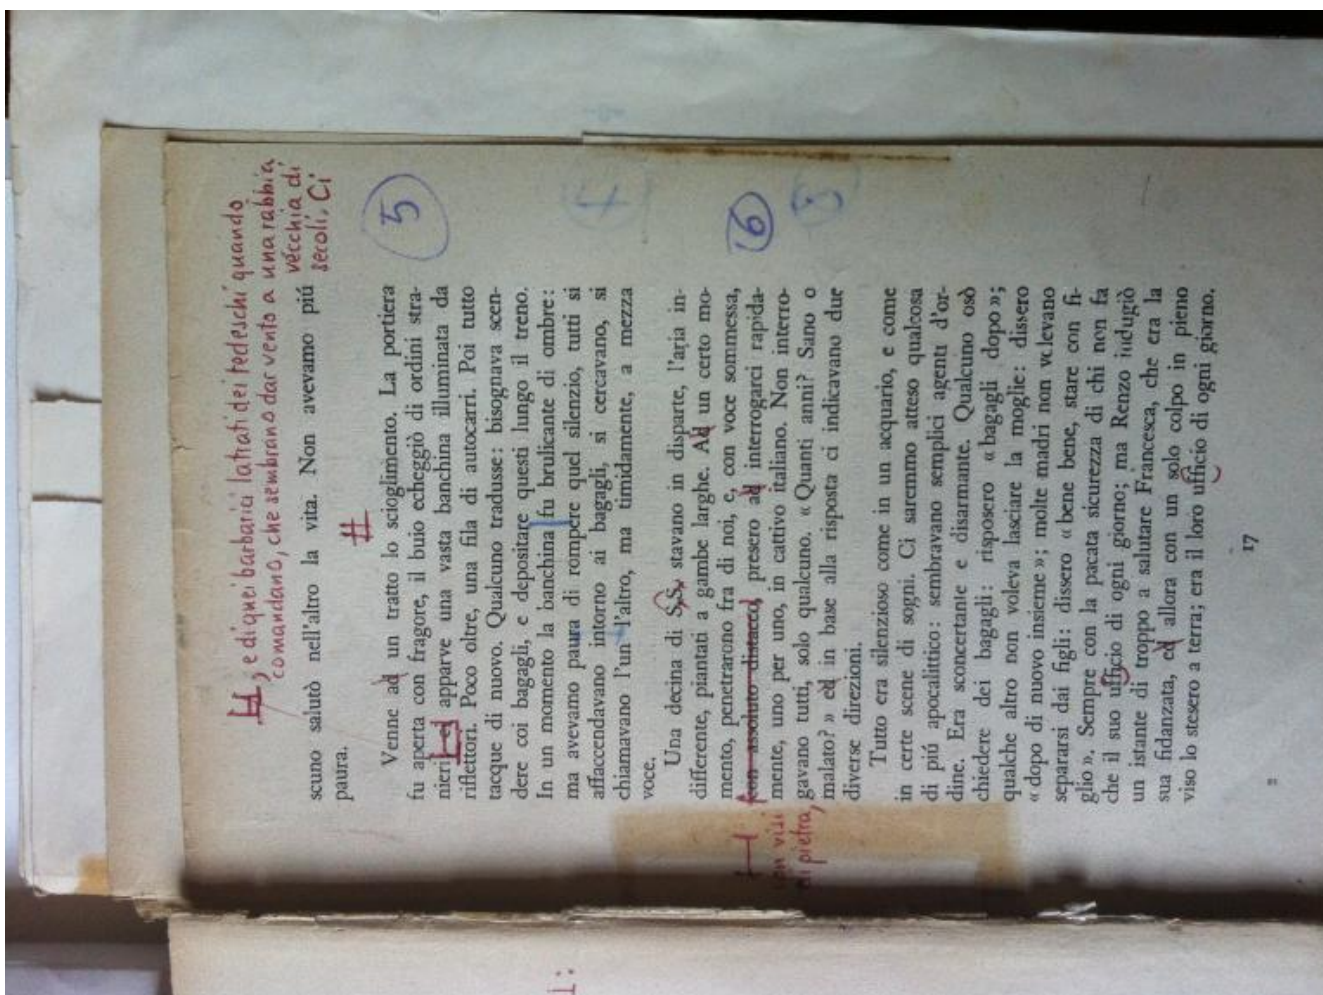 ; e di quei barbarici latrati dei tedeschi quando
comandano, che sembrano dar vento a una rabbia
vecchia di
secoli. Ci
scuno salutò nell'altro la vita. Non avevamo piú
paura.
#
Venne ad un tratto lo scioglimento. La portiera
5
fu aperta con fragore, il buio echeggiò di ordini stra-
nieri ed apparve una vasta banchina illuminata da
riflettori. Poco oltre, una fila di autocarri. Poi tutto
tacque di nuovo. Qualcuno tradusse: bisognava scen-
dere coi bagagli, e depositare questi lungo il treno.
In un momento la banchina fu brulicante di ombre:
ma avevamo paura di rompere quel silenzio, tutti si
affaccendavano intorno ai bagagli, si cercavano, si
chiamavano l'un l'altro, ma timidamente, a mezza
voce.
Una decina di S.S. stavano in disparte, l'aria in-
differente, piantati a gambe larghe. Ad un certo mo-
mento, penetrarono fra di noi, e, con voce sommessa,
6
con assoluto distacco, presero ad interrogarci rapida-
con visi
di pietra,
mente, uno per uno, in cattivo italiano. Non interro-
gavano tutti, solo qualcuno. « Quanti anni? Sano o
malato? » ed in base alla risposta ci indicavano due
diverse direzioni.
Tutto era silenzioso come in un acquario, e come
in certe scene di sogni. Ci saremmo atteso qualcosa
di piú apocalittico: sembravano semplici agenti d'or-
dine. Era sconcertante e disarmante. Qualcuno osò
chiedere dei bagagli: risposero « bagagli dopo »;
qualche altro non voleva lasciare la moglie: dissero
« dopo di nuovo insieme »; molte madri non volevano
separarsi dai figli: dissero « bene bene, stare con fi-
glio ». Sempre con la pacata sicurezza di chi non fa
che il suo ufficio di ogni giorno; ma Renzo indugiò
un istante di troppo a salutare Francesca, che era la
sua fidanzata, ed allora con un solo colpo in pieno
viso lo stesero a terra; era il loro ufficio di ogni giorno.
17
2